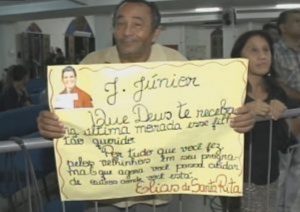 J. Júnior
Que Deus te receba
na última morada esse filho
tão querido.
"Por tudo que você fez
pelos velhinhos em seu progra-
ma que agora você possa cuidar
de outros onde você está".
Elias de Santa Rita